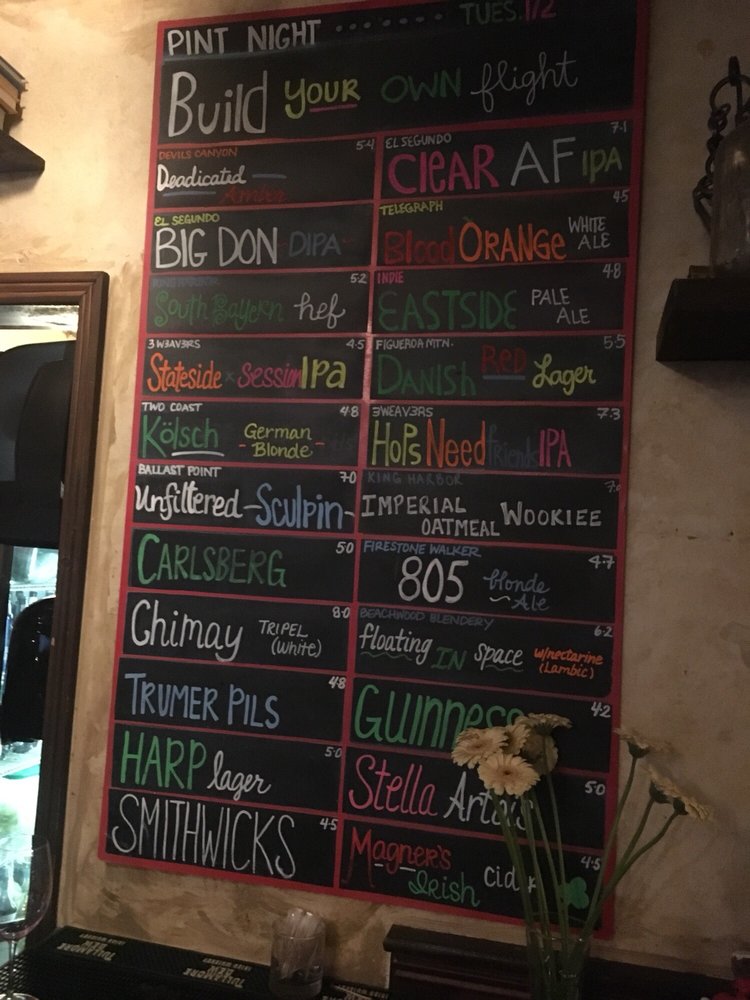 PINT NIGHT ........ TUES. 1/2
Build YOUR OWN flight
DEVILS CANYON 5.4
Deadicated Amber
EL SEGUNDO 7.1
CLEAR AF IPA
EL SEGUNDO
BIG DON -DIPA-
TELEGRAPH 4.5
Blood ORANGE WHITE ALE
KING HARBOR 5.2
South Bayern hef
INDIE 4.8
EASTSIDE PALE ALE
3 WEAVERS 4.5
Stateside x Session Ipa
FIGUEROA MTN. 5.5
DANISH RED Lager
TWO COAST 4.8
Kölsch - German Blonde -
3WEAV3RS 7.3
HOPS Need friends IPA
BALLAST POINT 7.0
Unfiltered -Sculpin-
KING HARBOR 7.0
IMPERIAL OATMEAL WOOKIEE
CARLSBERG 5.0
FIRESTONE WALKER 4.7
805 blonde Ale
Chimay TRIPEL (White) 8.0
BEACHWOOD BLENDERY 6.2
floating IN space w/nectarine (Lambic)
TRUMER PILS 4.8
GUINNESS 4.2
HARP lager 5.0
Stella Artois 5.0
SMITHWICKS 4.5
Magner's Irish Cider 4.5
TULLAMORE DEW
TULLAMORE DEW